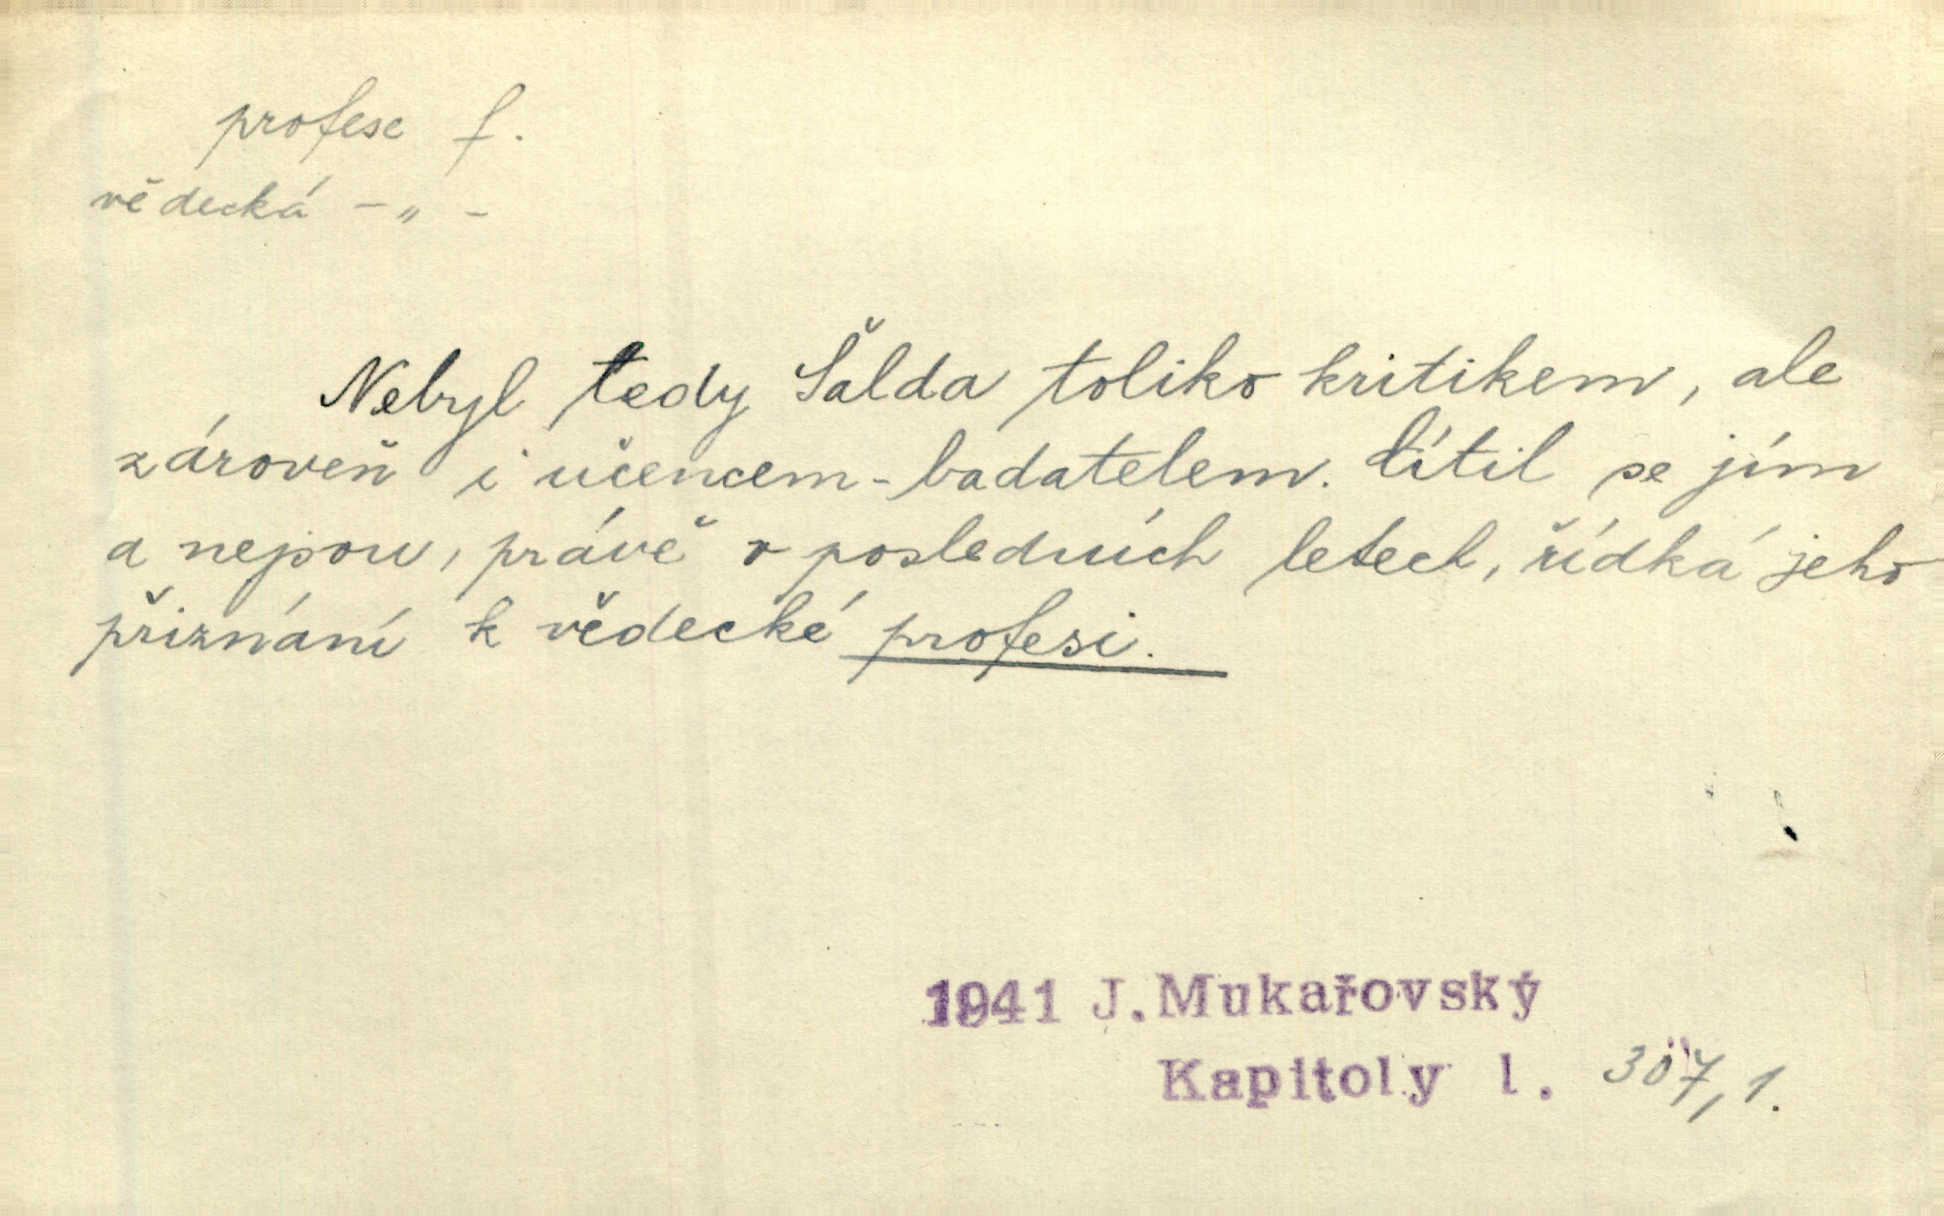 profese f.
vědecká -„-
Nebyl tedy Šalda toliko kritikem, ale
zároveň i učencem-badatelem. Cítil se jím
a nejsou, právě v posledních letech, řídká jeho
přiznání k vědecké profesi.
1941 J. Mukařovský
Kapitoly 1. 307,1.